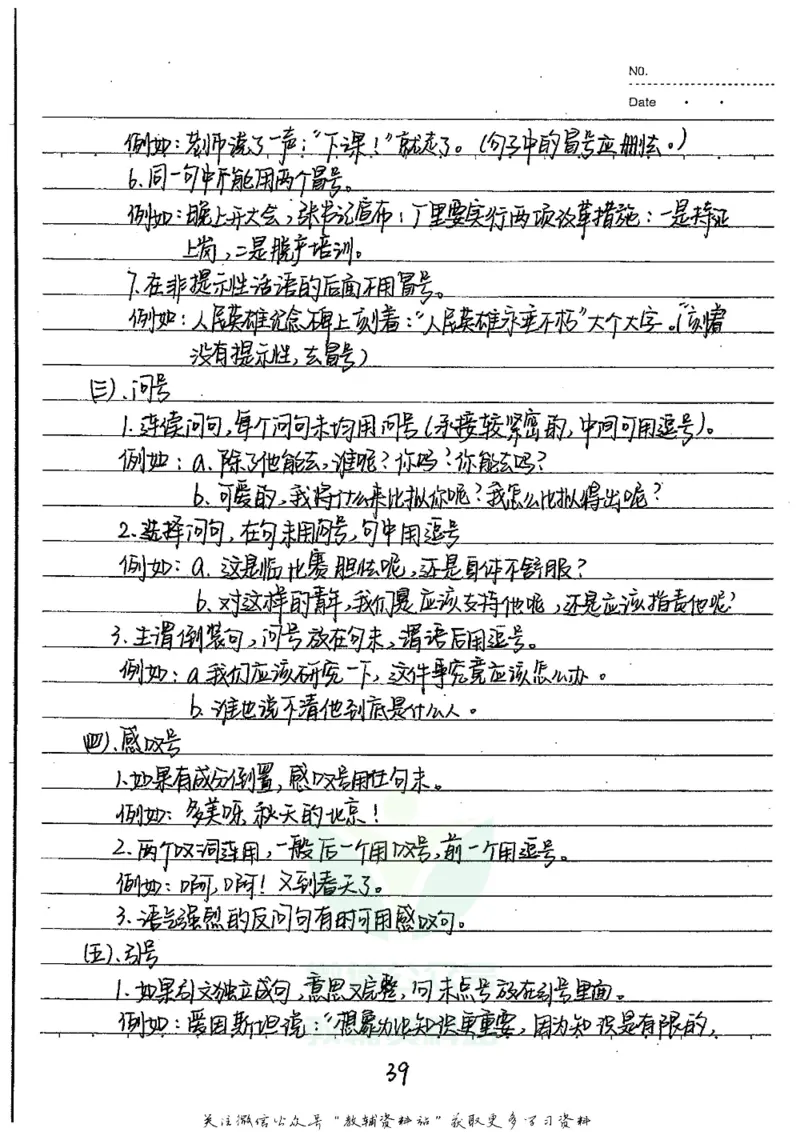 No.
Date
例如：老师说了一声："下课！"就走了。（句子中的冒号应删去。）
6.同一句中不能用两个冒号。
例如：晚上开大会，张书记宣布：厂里要实行两项改革措施：一是持证
上岗，二是脱产培训。
7.在非提示性话语的后面不用冒号。
例如：人民英雄纪念碑上刻着："人民英雄永垂不朽"大个大字。（"刻着
没有提示性，去冒号）
（三）.问号
1.连续问句，每个问句末均用问号（承接较紧密的，中间可用逗号）。
例如：a.除了他能去，谁呢？你吗？你能去吗？
b.可爱的，我将什么来比拟你呢？我怎么比拟得出呢？
2.选择问句，在句末用问号，句中用逗号
例如：a.这是临比赛胆怯呢，还是身体不舒服？
b.对这样的青年，我们是应该支持他呢，还是应该指责他呢？
3.主谓倒装句，问号放在句末，谓语后用逗号。
例如：a我们应该研究一下，这件事究竟应该怎么办。
b.谁也说不清他到底是什么人。
（四）.感叹号
1.如果有成分倒置，感叹号用在句末。
例如：多美呀 秋天的北京！
2.两个叹词连用，一般后一个用叹号，前一个用逗号。
例如：啊，啊！又到春天了。
3.语气强烈的反问句有时可用感叹句。
（五）.引号
1.如果引文独立成句，意思又完整，句末点号放在引号里面。
例如：爱因斯坦说："想象力比知识更重要，因为知识是有限的，
39
关注微信公众号"教辅资料站"获取更多学习资料